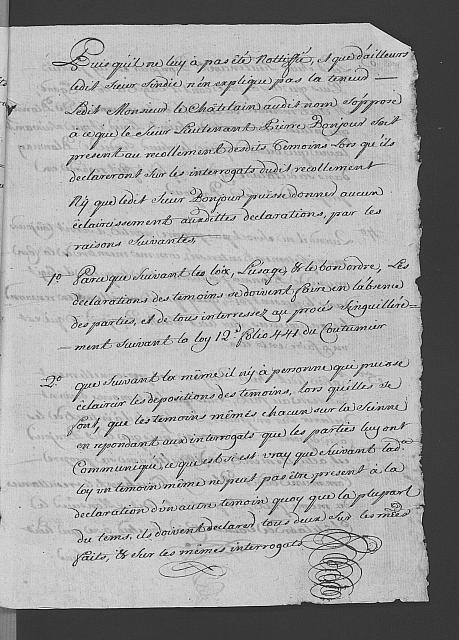 Puis qu'il ne luy à pas été Nottiffié, et que d'ailleurs
ledit Sieur Sindic n'en explique pas la teneur —
Ledit Monsieur le Châtelain audit nom s'opposé
à ce que le Sieur Lieutenant Pierre Bonjour soit
present au recollement desdits temoins lors qu'ils
declareront sur les interrogats dudit recollement
Ny que ledit Sieur Bonjour puisse donner aucun
éclaircissement auxdittes declarations, par les
raisons suivantes,
1º Parce que suivant les loix, l'usage, & le bon ordre, les
declarations des temoins se doivent faire en l'absence
des parties, et de tous interressez au procés singuillére=
ment suivant la loy 12.e folio 441 du Coutumier
2º que suivant la même il n'y à personne que puisse
éclaircir les depositions des temoins, lors qu'elles se
font, que les temoins mêmes chacun sur la sienne
en repondant aux interrogats que les parties luy ont
Communiqué, ce que est si est vray que suivant lad.e
loy un temoin même ne peut pas être present à la
declaration d'un autre temoin quoy que la plupart
du tems, ils doivent declarer tous deux sur les mês
faits, & sur les mêmes interrogats